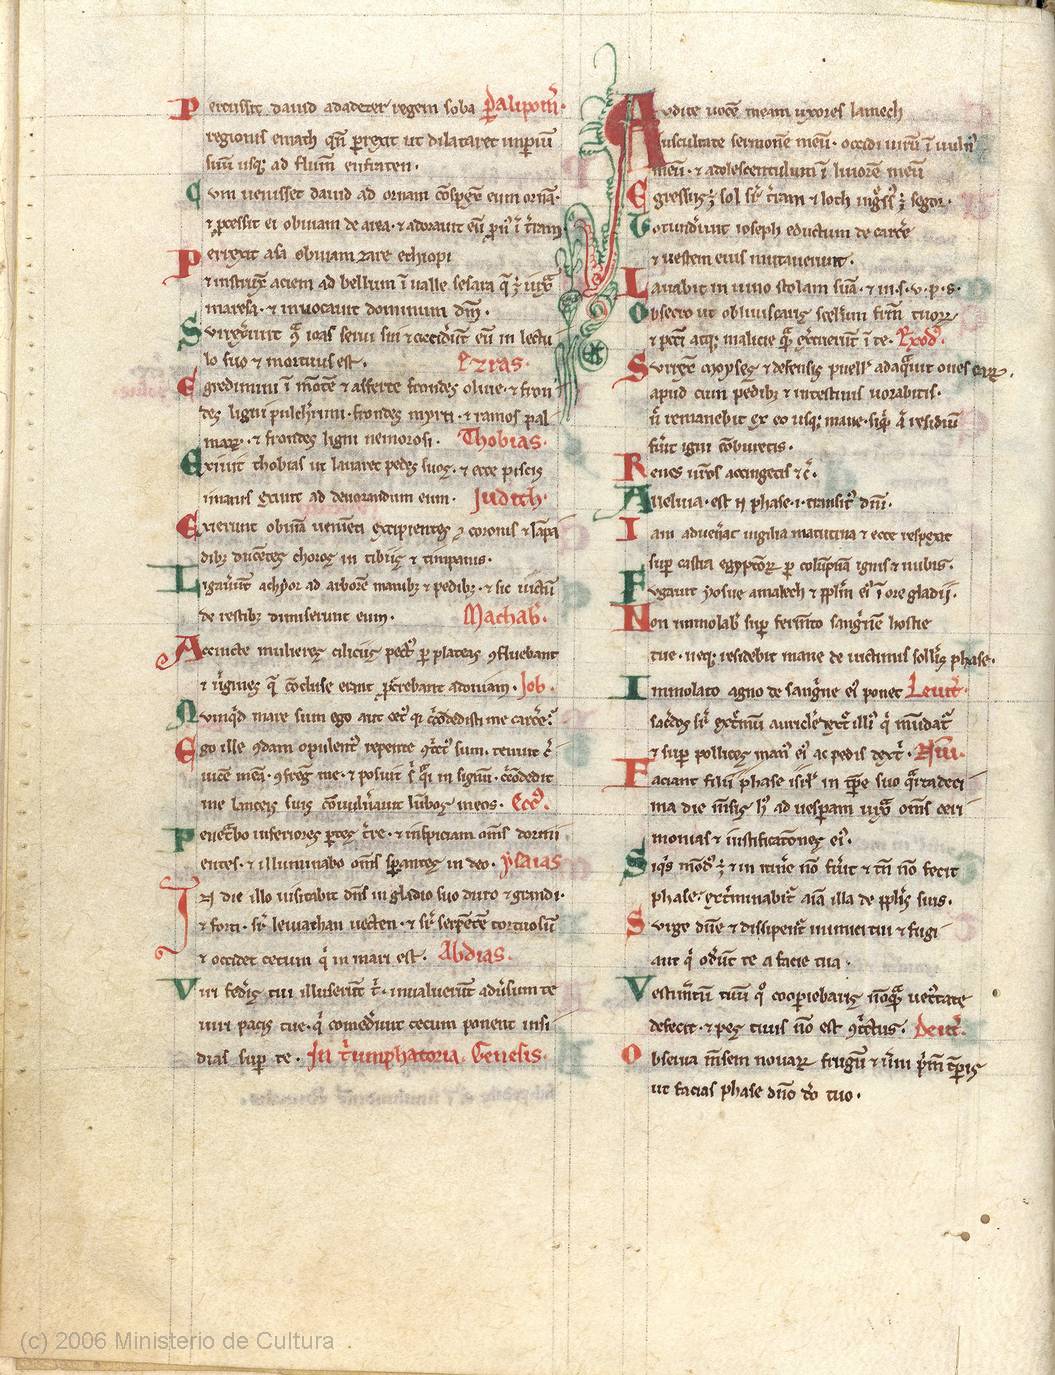 Percussit dauid adadezer regem soba Paralipom̄.
regionis emath qn̄ ꝑrexit ut dilataret imꝑiū
suū usqꝫ ad flum̄ eufraten.
Cum uenisset dauid ad ornam cōspex̄ eum ornā.
⁊ ꝓcessit ei obuiam de area. ⁊ adorauit eū ꝓn̄ ī t̄ram
Perrexit asa obuiam zare ethiopi
⁊ instrux̄ aciem ad bellum ī ualle sefata
maresa. ⁊ inuocauit dominum dm̄.
Surrex̄unt ioas serui sui ⁊ occidūt eū in lectu
lo suo ⁊ mortuus est. Ezras.
Egredimini ī mōte ⁊ afferte frondes oliue. ⁊ fron
des ligni pulch̄rimi. frondes myrti. ⁊ ramos pal
maꝝ. ⁊ frondes ligni nemorosi. Thobias.
Exiuit thobias ut lauaret pedes suos. ⁊ ecce piscis
imanis exiuit ad deuorandum eum. Judith.
Exierunt obuiā uenienti excipientes coronis ⁊ lāpa
dibꝫ ducētes choros in tibiis ⁊ timpanis.
Ligauūt achior ad arborē manibꝫ ⁊ pedibꝫ. ⁊ sic uictū
de restibꝫ dimiserunt eum. Machab̄.
Accincte mulieres ciliciis pect̄ ꝑ plateas ꝯfluebant
⁊ uīgines q̄ cōcluse erant ꝓcurrebant ad oniam. Job.
Nunqd mare sum ego aut cet̄ q̄ cīcōdedisti me carcē.
Ego ille qdam opulent̄ repente ꝯt̄t̄ sum. tenuit c̄
uicē meā. ꝯfreḡ me. ⁊ posuit s̄ q̄si in signū. cīcōdedit
me lanceis suis cōuuln̄auit lūbos meos. Ecc̄.
Penet̄bo inferiores ꝑtes t̄re. ⁊ inspiciam om̄s dormi
entes. ⁊ illuminabo om̄s sꝑantes in deo. ysaias
In die illo uisitabit dn̄s in gladio suo duro ⁊ grandi.
⁊ forti. sr̄ leuiathan uecten. ⁊ sr̄ serpētē tortuosū
⁊ occidet cetum q̄ in mari est. Abdias.
Viri fedīs tui illuserūt t̄. inualuerūt adūsum te
uiri pacis tue. q̄ comedūt tecum ponent insi
dias suꝑ te. In t̄umphatoria. Genesis.
Audite uocē meam uxores lamech
Auscultate sermonē meū. occidi uirū ī uuln̄
meū. ⁊ adolescentulum ī liuorē meū
Egressus ē sol sr̄ t̄ram ⁊ loth inḡss̄ ē segor.
Totundūnt ioseph eductum de carc̄e
⁊ uestem eius mutauerunt.
Lauabit in uino stolam suā. ⁊ in. s. v. p. s.
Obsecro ut obliuiscaris scel̄um fr̄m̄ tuoꝝ
⁊ pctī atqꝫ malicie q̄ ex̄cuerūt ī te. Exod̄.
Surrex̄ moyses ⁊ defensis puell̄ adaq̄uit oues eaꝝ.
apud cum pedibꝫ ⁊ intestinis uorabitis.
n̄ remanebit ex eo usqꝫ mane. siq̄ q̄ residuū
fūit igni cōburetis.
Renes uros accingetis ⁊ c̄.
Alleluia. est n̄ phase. i. transit̄ dn̄i.
Iam aduen̄at uigilia matutina ⁊ ecce respexit
suꝑ castra egyptioꝝ ꝑ colūpnā ignis ⁊ nubis.
Fugauit yosue amalech ⁊ pplm̄ ei̾ ī ore gladii.
Non immolab̄ suꝑ ferm̄to sangˢnē hostie
tue. neqꝫ residebit mane de uictimis sollīs phase.
Immolato agno de sangˢne ei̾ ponet Leuit̄.
sac̄dos sr̄ ext̄mū auricl̄e dext̄ illi̾ q̄ mūdat̄
⁊ suꝑ pollices man̾ ei̾ ac pedis dext̄. Nūi.
Faciant filii phase isrl̄ in tꝑe suo q̄rtadeci
ma die m̄sis h̾ ad uesꝑam iux̄ om̄s ceri
monias ⁊ iustificatōnes ei̾.
Siqˢs mōd̾ ē ⁊ in itin̄e nō fūit ⁊ tn̄ nō fecit
phase. ext̄minabit̄ aīa illa de pplīs suis.
Surge dn̄e ⁊ dissipent̄ inimici tui ⁊ fugi
ant q̄ odūt te a facie tua.
Vestim̄tū tuū q̾ cooꝑiebaris nōq̄ uet̄tate
defecit. ⁊ pes tuus nō est ꝯt̄tus. Deut̄.
Obserua m̄sem nouaꝝ frugū ⁊ ūni p̄m̄ tꝑis
ut facias phase dn̄o dō tuo.
(c) 2006 Ministerio de Cultura